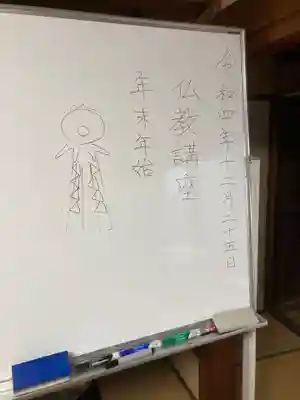 令和四年十二月二十五日
仏教講座
年末年始